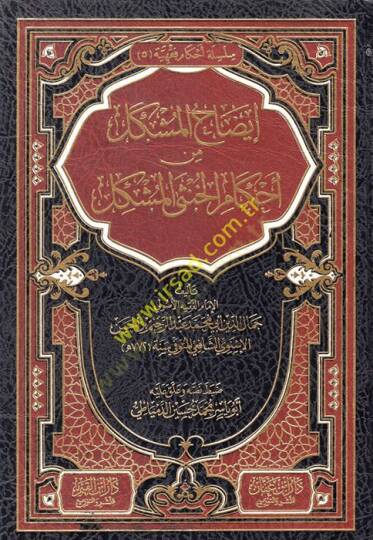 سلسلة أحكام فقهية (٥)
إيضاح المشكل
من
أحكام الخنثى المشكل
تأليف
الإمام الفقيه الأصولي
جمال الدين أبي محمد عبد الرحيم بن الحسن
الإسنوي الشافعي المتوفى سنة (٧٧٢هـ)
ضبط نصه وعلق عليه
أبو ياسر محمد حسين الدمياطي
www.irsad.com.tr
دار ابن عفان
للنشر والتوزيع
دار ابن القيم
للنشر والتوزيع